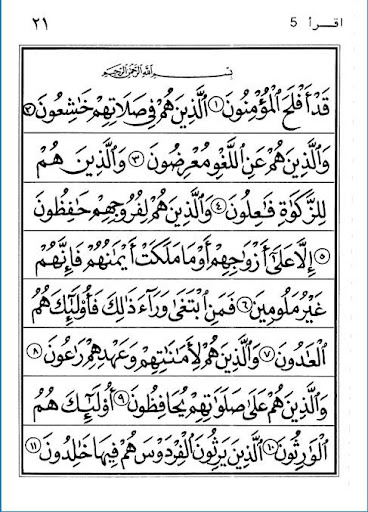 اقرأ 5 ٢١
بِسْمِ اللَّهِ الرَّحْمَٰنِ الرَّحِيمِ
قَدْ أَفْلَحَ الْمُؤْمِنُونَ ١ الَّذِينَ هُمْ فِي صَلَاتِهِمْ خَاشِعُونَ ٢
وَالَّذِينَ هُمْ عَنِ اللَّغْوِ مُعْرِضُونَ ٣ وَالَّذِينَ هُمْ
لِلزَّكَوٰةِ فَاعِلُونَ ٤ وَالَّذِينَ هُمْ لِفُرُوجِهِمْ حَافِظُونَ
٥ إِلَّا عَلَىٰ أَزْوَاجِهِمْ أَوْ مَا مَلَكَتْ أَيْمَانُهُمْ فَإِنَّهُمْ
غَيْرُ مَلُومِينَ ٦ فَمَنِ ابْتَغَىٰ وَرَاءَ ذَٰلِكَ فَأُولَٰئِكَ هُمُ
الْعَادُونَ ٧ وَالَّذِينَ هُمْ لِأَمَانَاتِهِمْ وَعَهْدِهِمْ رَاعُونَ ٨
وَالَّذِينَ هُمْ عَلَىٰ صَلَوَاتِهِمْ يُحَافِظُونَ ٩ أُولَٰئِكَ هُمُ
الْوَارِثُونَ ١٠ الَّذِينَ يَرِثُونَ الْفِرْدَوْسَ هُمْ فِيهَا خَالِدُونَ ١١